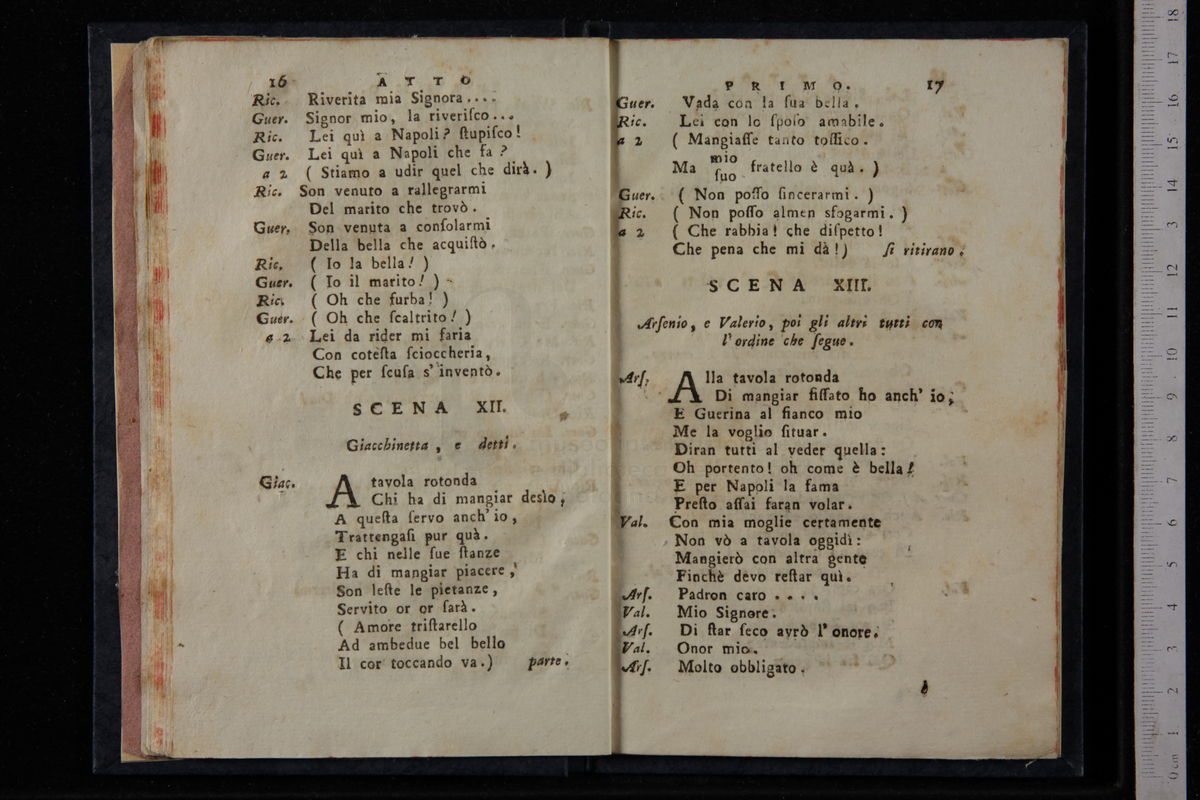 16 A T T O
Ric. Riverita mia Signora....
Guer. Signor mio, la riveriſco...
Ric. Lei quì a Napoli? ſtupiſco!
Guer. Lei quì a Napoli che fa?
a 2 ( Stiamo a udir quel che dirà. )
Ric. Son venuto a rallegrarmi
Del marito che trovò.
Guer. Son venuta a conſolarmi
Della bella che acquiſtò.
Ric. ( Io la bella! )
Guer. ( Io il marito! )
Ric. ( Oh che furba! )
Guer. ( Oh che ſcaltrito! )
a 2 Lei da rider mi faria
Con coteſta ſcioccheria,
Che per ſcuſa s'inventò.
SCENA XII.
Giacchinetta, e detti.
Giac. A tavola rotonda
Chi ha di mangiar desìo,
A queſta ſervo anch'io,
Trattengaſi pur quà.
E chi nelle ſue ſtanze
Ha di mangiar piacere,
Son leſte le pietanze,
Servito or or ſarà.
( Amore triſtarello
Ad ambedue bel bello
Il cor toccando va.) parte.
P R I M O. 17
Guer. Vada con la ſua bella.
Ric. Lei con lo ſpoſo amabile.
a 2 ( Mangiaſſe tanto toſſico.
Ma mio fratello è quà. )
ſuo
Guer. ( Non poſſo ſincerarmi. )
Ric. ( Non poſſo almen sfogarmi. )
a 2 ( Che rabbia! che diſpetto!
Che pena che mi dà!) ſi ritirano.
SCENA XIII.
Arſenio, e Valerio, poi gli altri tutti con
l'ordine che ſegue.
Arſ. Alla tavola rotonda
Di mangiar fiſſato ho anch'io,
E Guerina al fianco mio
Me la voglio ſituar.
Diran tutti al veder quella:
Oh portento! oh come è bella!
E per Napoli la fama
Preſto aſſai faran volar.
Val. Con mia moglie certamente
Non vò a tavola oggidì:
Mangierò con altra gente
Finchè devo reſtar quì.
Arſ. Padron caro ....
Val. Mio Signore.
Arſ. Di ſtar ſeco avrò l'onore.
Val. Onor mio.
Arſ. Molto obbligato.
b
18
17
16
15
14
13
12
11
10
9
8
7
6
5
4
3
2
1
0 cm